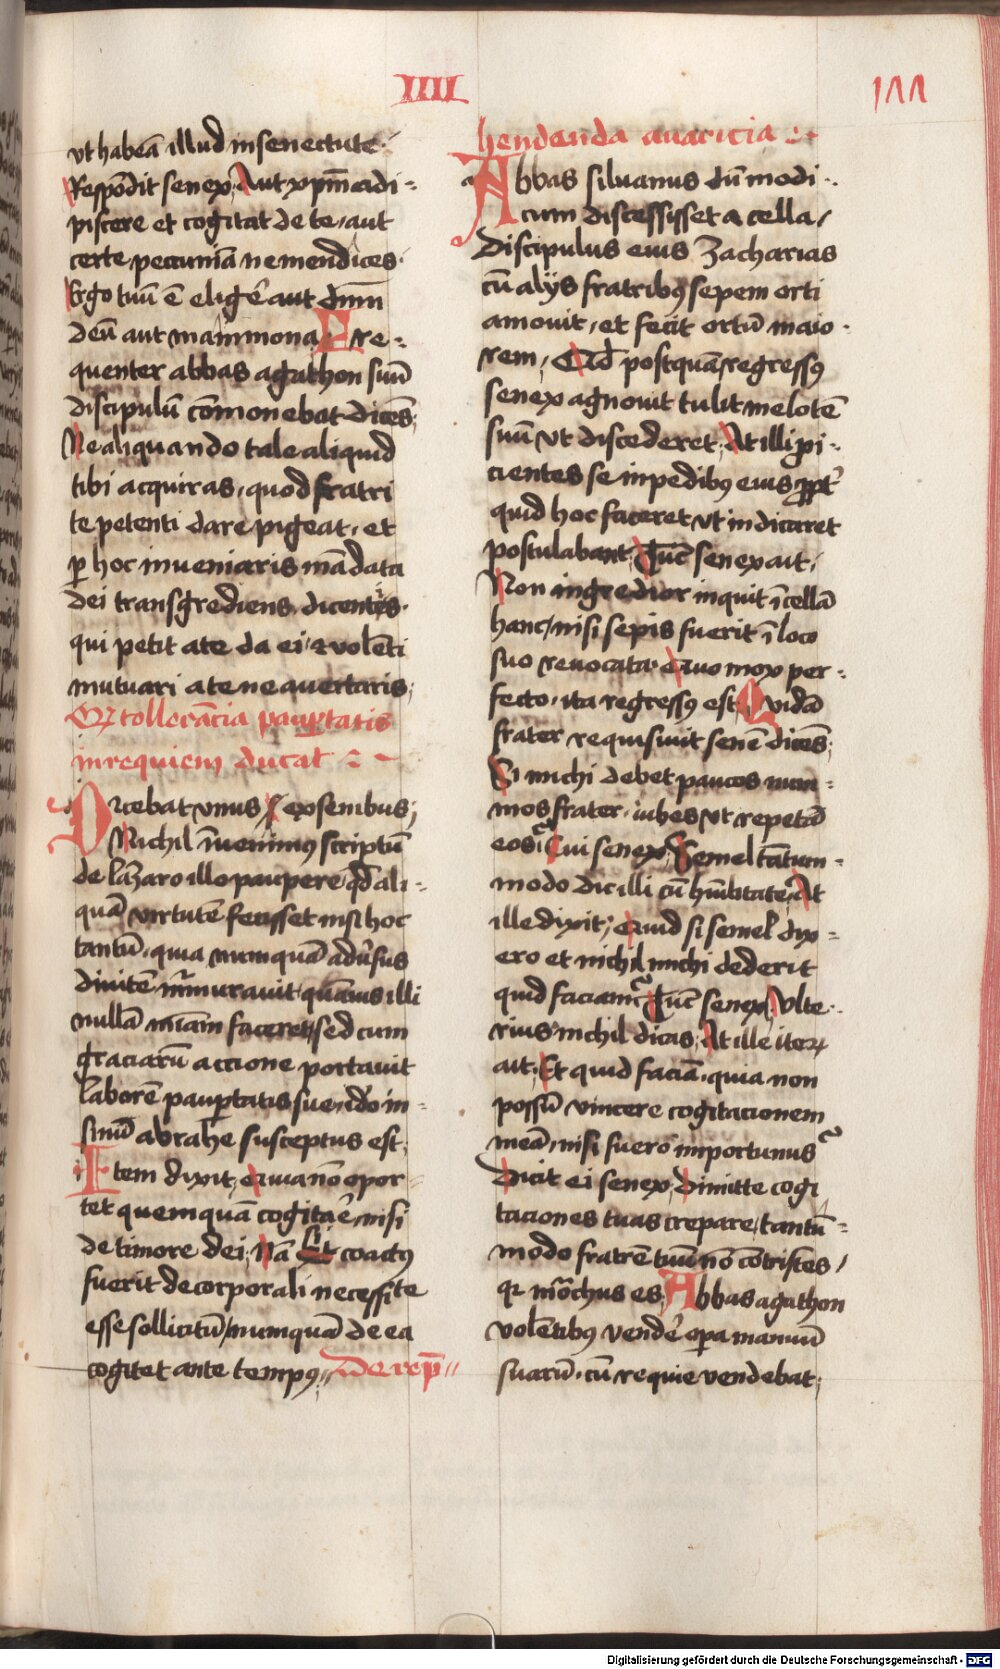 IIII
111
vt habeā illud in senectute·
Respōdit senex, Aut xpm̄ adi=
piscere et cogitat de te, aut
certe peccuniā ne mendices·
Ergo tuū ē eligē aut dnm̄
deū aut mammona F re=
quenter abbas agathon suū
discipulū cōmonebat dicēs,
Ne aliquando tale aliquid
tibi acquiras, quod fratri
te petenti dare pigeat, et
p hoc inueniaris mādata
dei transgrediens, dicentis·
qui petit a te da ei, et volēti
mutuari a te ne auertaris,
Qz tollerācia paupertatis
in requiem ducat
Dicebat vnus ex senibus,
Nichil inuenimus scriptū
de lazaro illo paupere qd ali=
quā virtutē fecisset nisi hoc
tantū, quia numquā adūsus
diuitē murmurauit quāuis illi
nullā mīam faceret, sed cum
graciarū accione portauit
laborē paupertatis sue, ido in=
sinū abrahe susceptus est,
Item dixit, Quia nō opor=
tet quemquā cogitare, nisi
de timore dei, Nā Si et coactus
fuerit de corporali necessite
esse sollicitū, numquā de ea
cogitet ante tempus, De rep̄
hendenda auaricia
Abbas siluanus dū modi=
cum discessisset a cella,
Discipulus eius Zacharias
cū alijs fratribus sepem orti
amouit, et fecit ortū maio=
rem, Qd postquā regressus
senex agnouit tulit melotē
suū vt discederet, At illi pi=
cientes se in pedibus eius ppt
quid hoc faceret vt indicaret
postulabant, Tūc senex ait,
Non ingredior inquit ī cellā
hanc, nisi sepis fuerit ī loco
suo reuocata, Quo mox per=
fecto, ita regressus est Quidā
frater requisiuit senē dicēs,
Si michi debet paucos num=
mos frater, iubes vt repetā
eos, Cui senex, Semel tātum=
modo dic illi cū hūilitate, At
ille dixit, Quid si semel dix=
ero et nichil michi dederit
quid faciam, Tūc senex, Vlte=
rius nichil dicas, At ille iterz
ait, Et quid faciā, quia non
possū vincere cogitacionem
meā, nisi fuero importunus
Dicit ei senex, Dimitte cogi
taciones tuas crepare, tantū=
modo fratrē tuū nō cōtristes,
qz mōchus es, Abbas agathon
volētibus vendē opa manuū
suarū, cū requie vendebat,
Digitalisierung gefördert durch die Deutsche Forschungsgemeinschaft - DFG